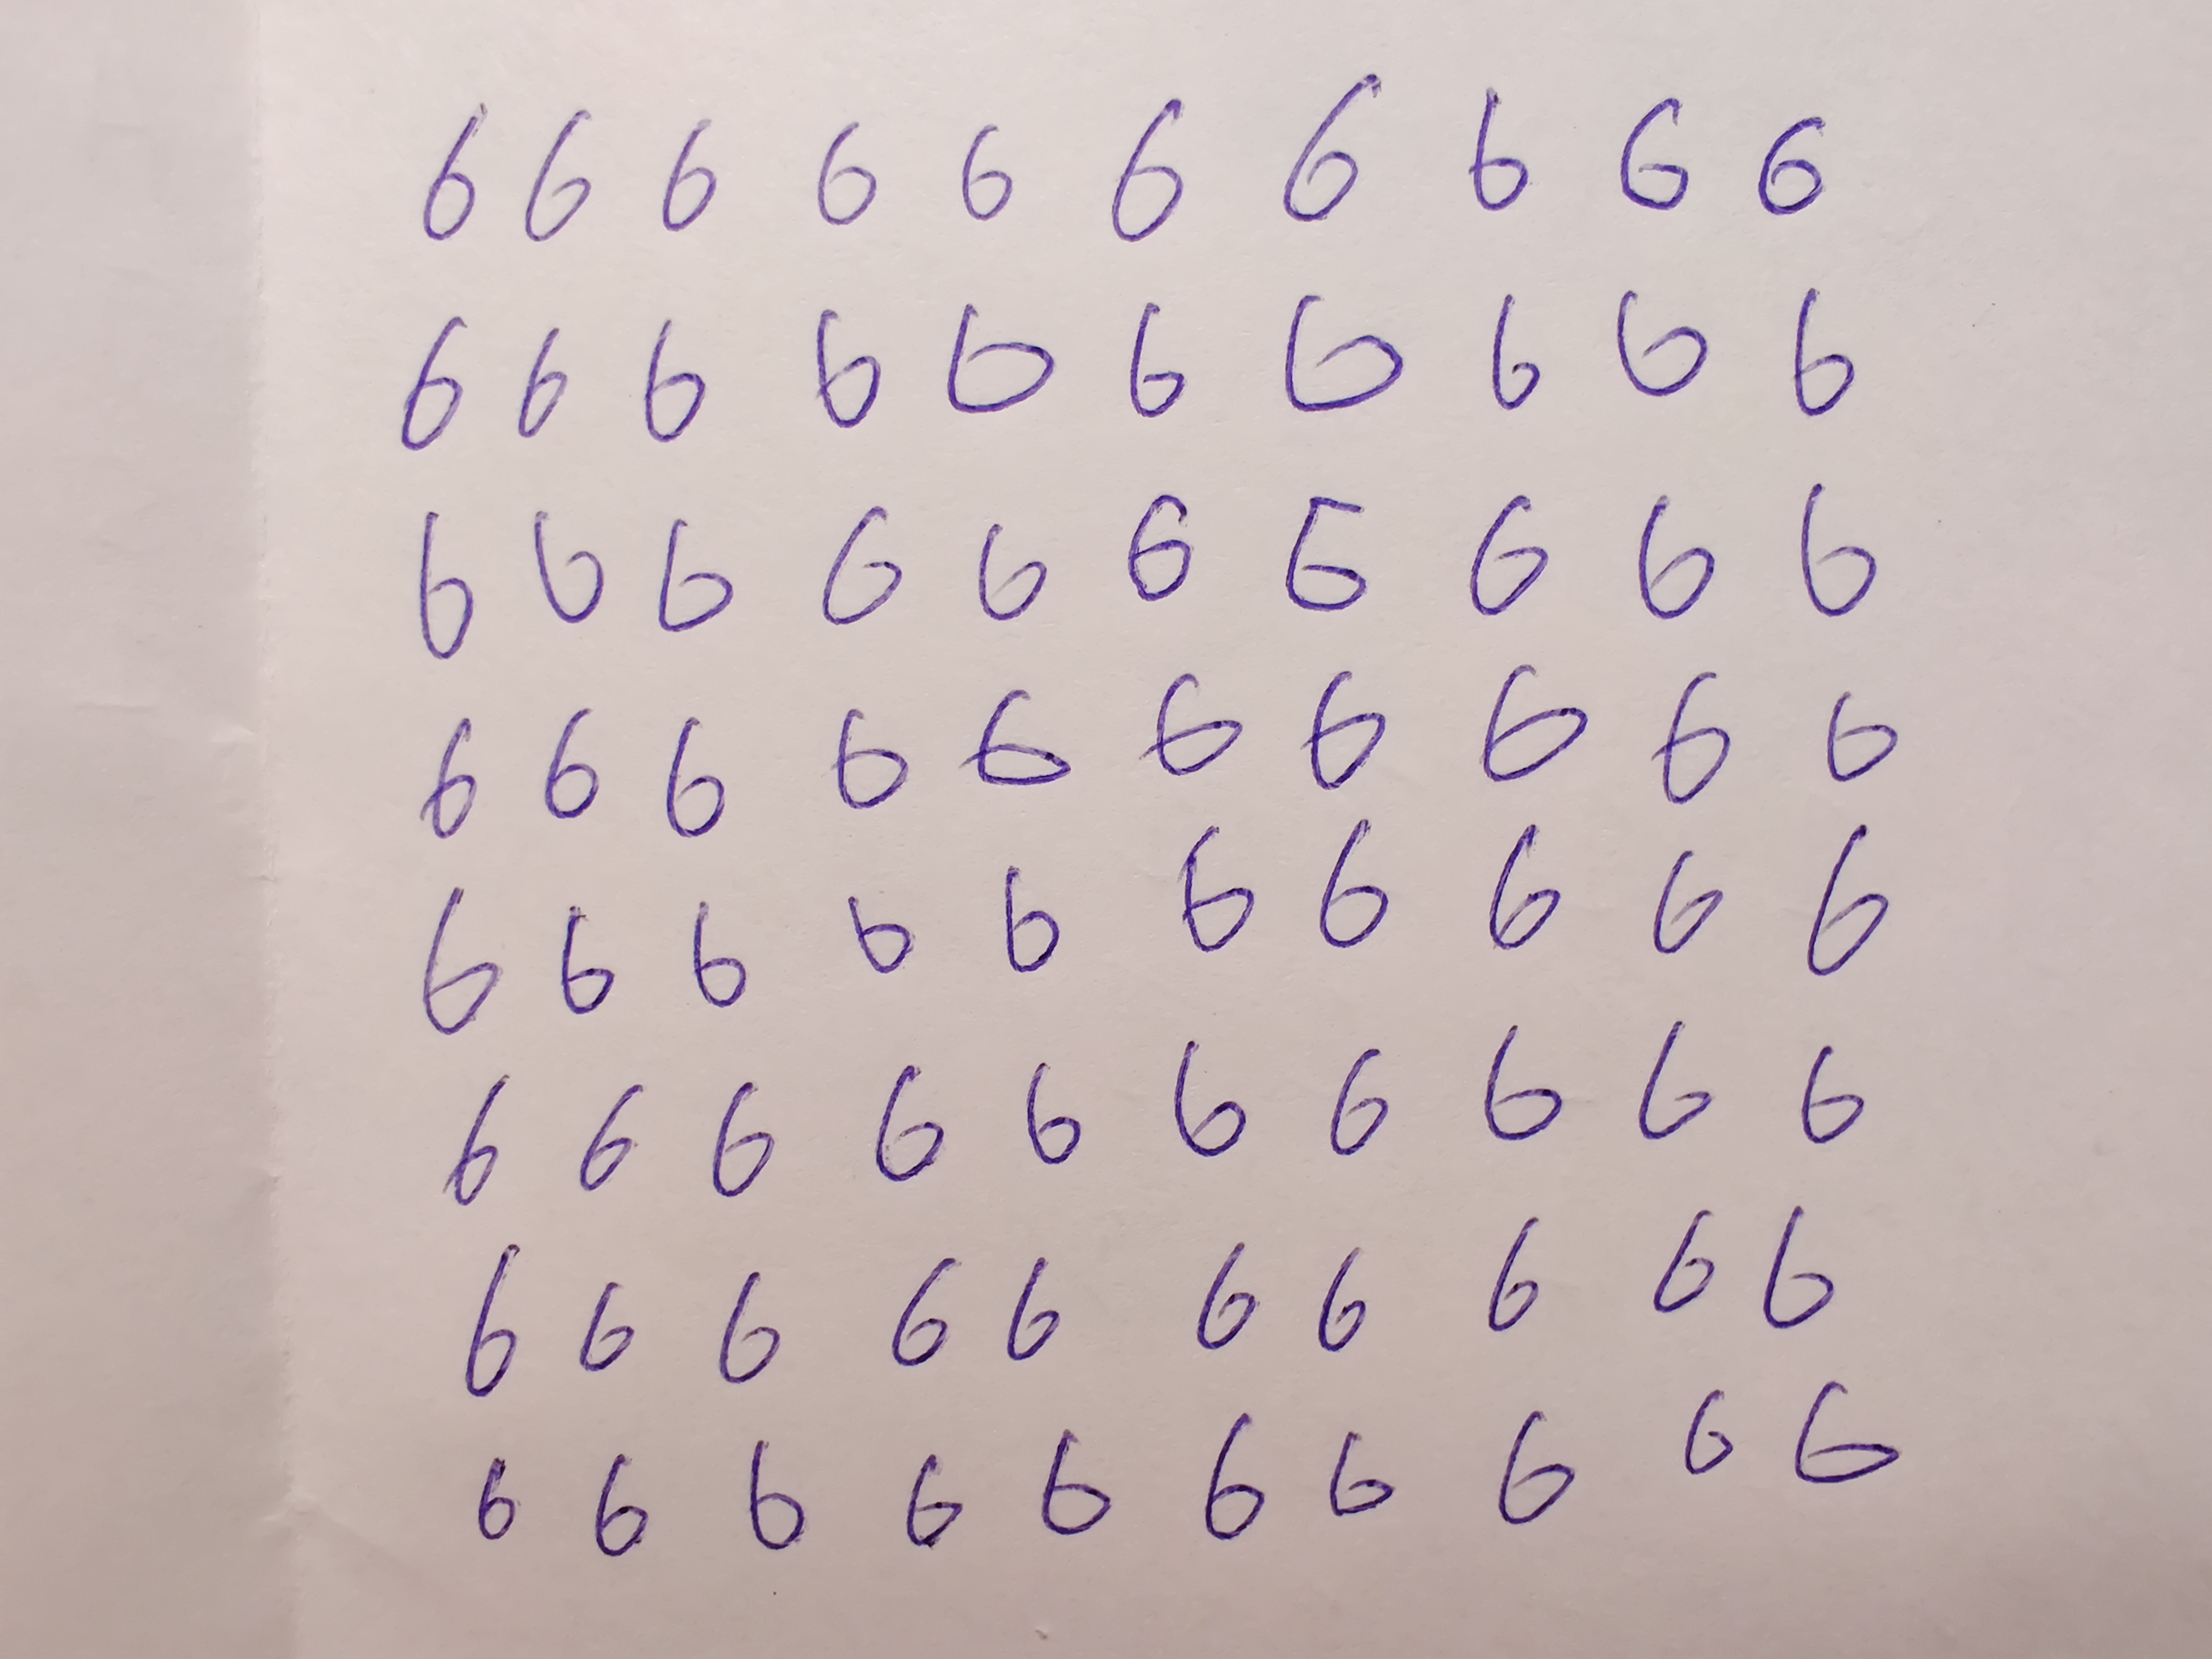 6 6 6 6 6 6 6 6 6 6
6 6 6 6 6 6 6 6 6 6
6 6 6 6 6 6 6 6 6 6
6 6 6 6 6 6 6 6 6 6
6 6 6 6 6 6 6 6 6 6
6 6 6 6 6 6 6 6 6 6
6 6 6 6 6 6 6 6 6 6
6 6 6 6 6 6 6 6 6 6